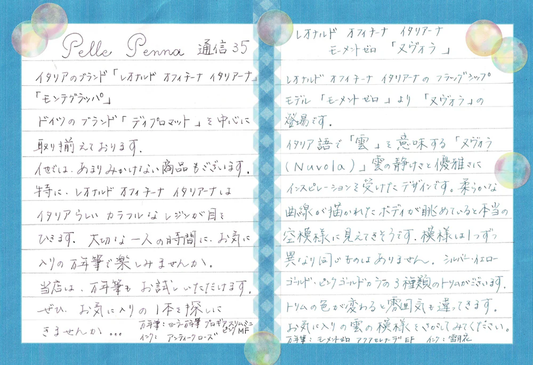 Pelle Penna 通信35
イタリアのブランド「レオナルド オフィチーナ イタリアーナ」
「モンテグラッパ」
ドイツのブランド「ディプロマット」を中心に
取り揃えております。
他ではあまりみかけない商品もございます。
特に、レオナルド オフィチーナ イタリアーナは
イタリアらしい カラフルなレジンが目を
ひきます。大切な一人の時間に、お気に
入りの万年筆で楽しみませんか。
当店は、万年筆も お試しいただけます。
ぜひ、お気に入りの1本を探しに
きませんか…
万年筆:
インク: アンティークローズ
レオナルド オフィチーナ イタリアーナ
モーメントゼロ 「ヌヴォラ」
レオナルド オフィチーナ イタリアーナの フラッグシップ
モデル「モーメントゼロ」より「ヌヴォラ」の
登場です。
イタリア語で「雲」を意味する「ヌヴォラ
(Nuvola)」雲の静けさと優雅さに
インスピレーションを受けたデザインです。柔らかな
曲線が描かれたボディが眺めていると本当の
空模様に見えてきそうです。模様は1つずつ
異なり同じものはありません。シルバー・イエロー
ゴールド・ピンクゴールドカラーの3種類のトリムがございます。
トリムの色が変わると雰囲気も違ってきます。
お気に入りの雲の模様をさがしてみてください。
万年筆: モーメントゼロ MF インク: